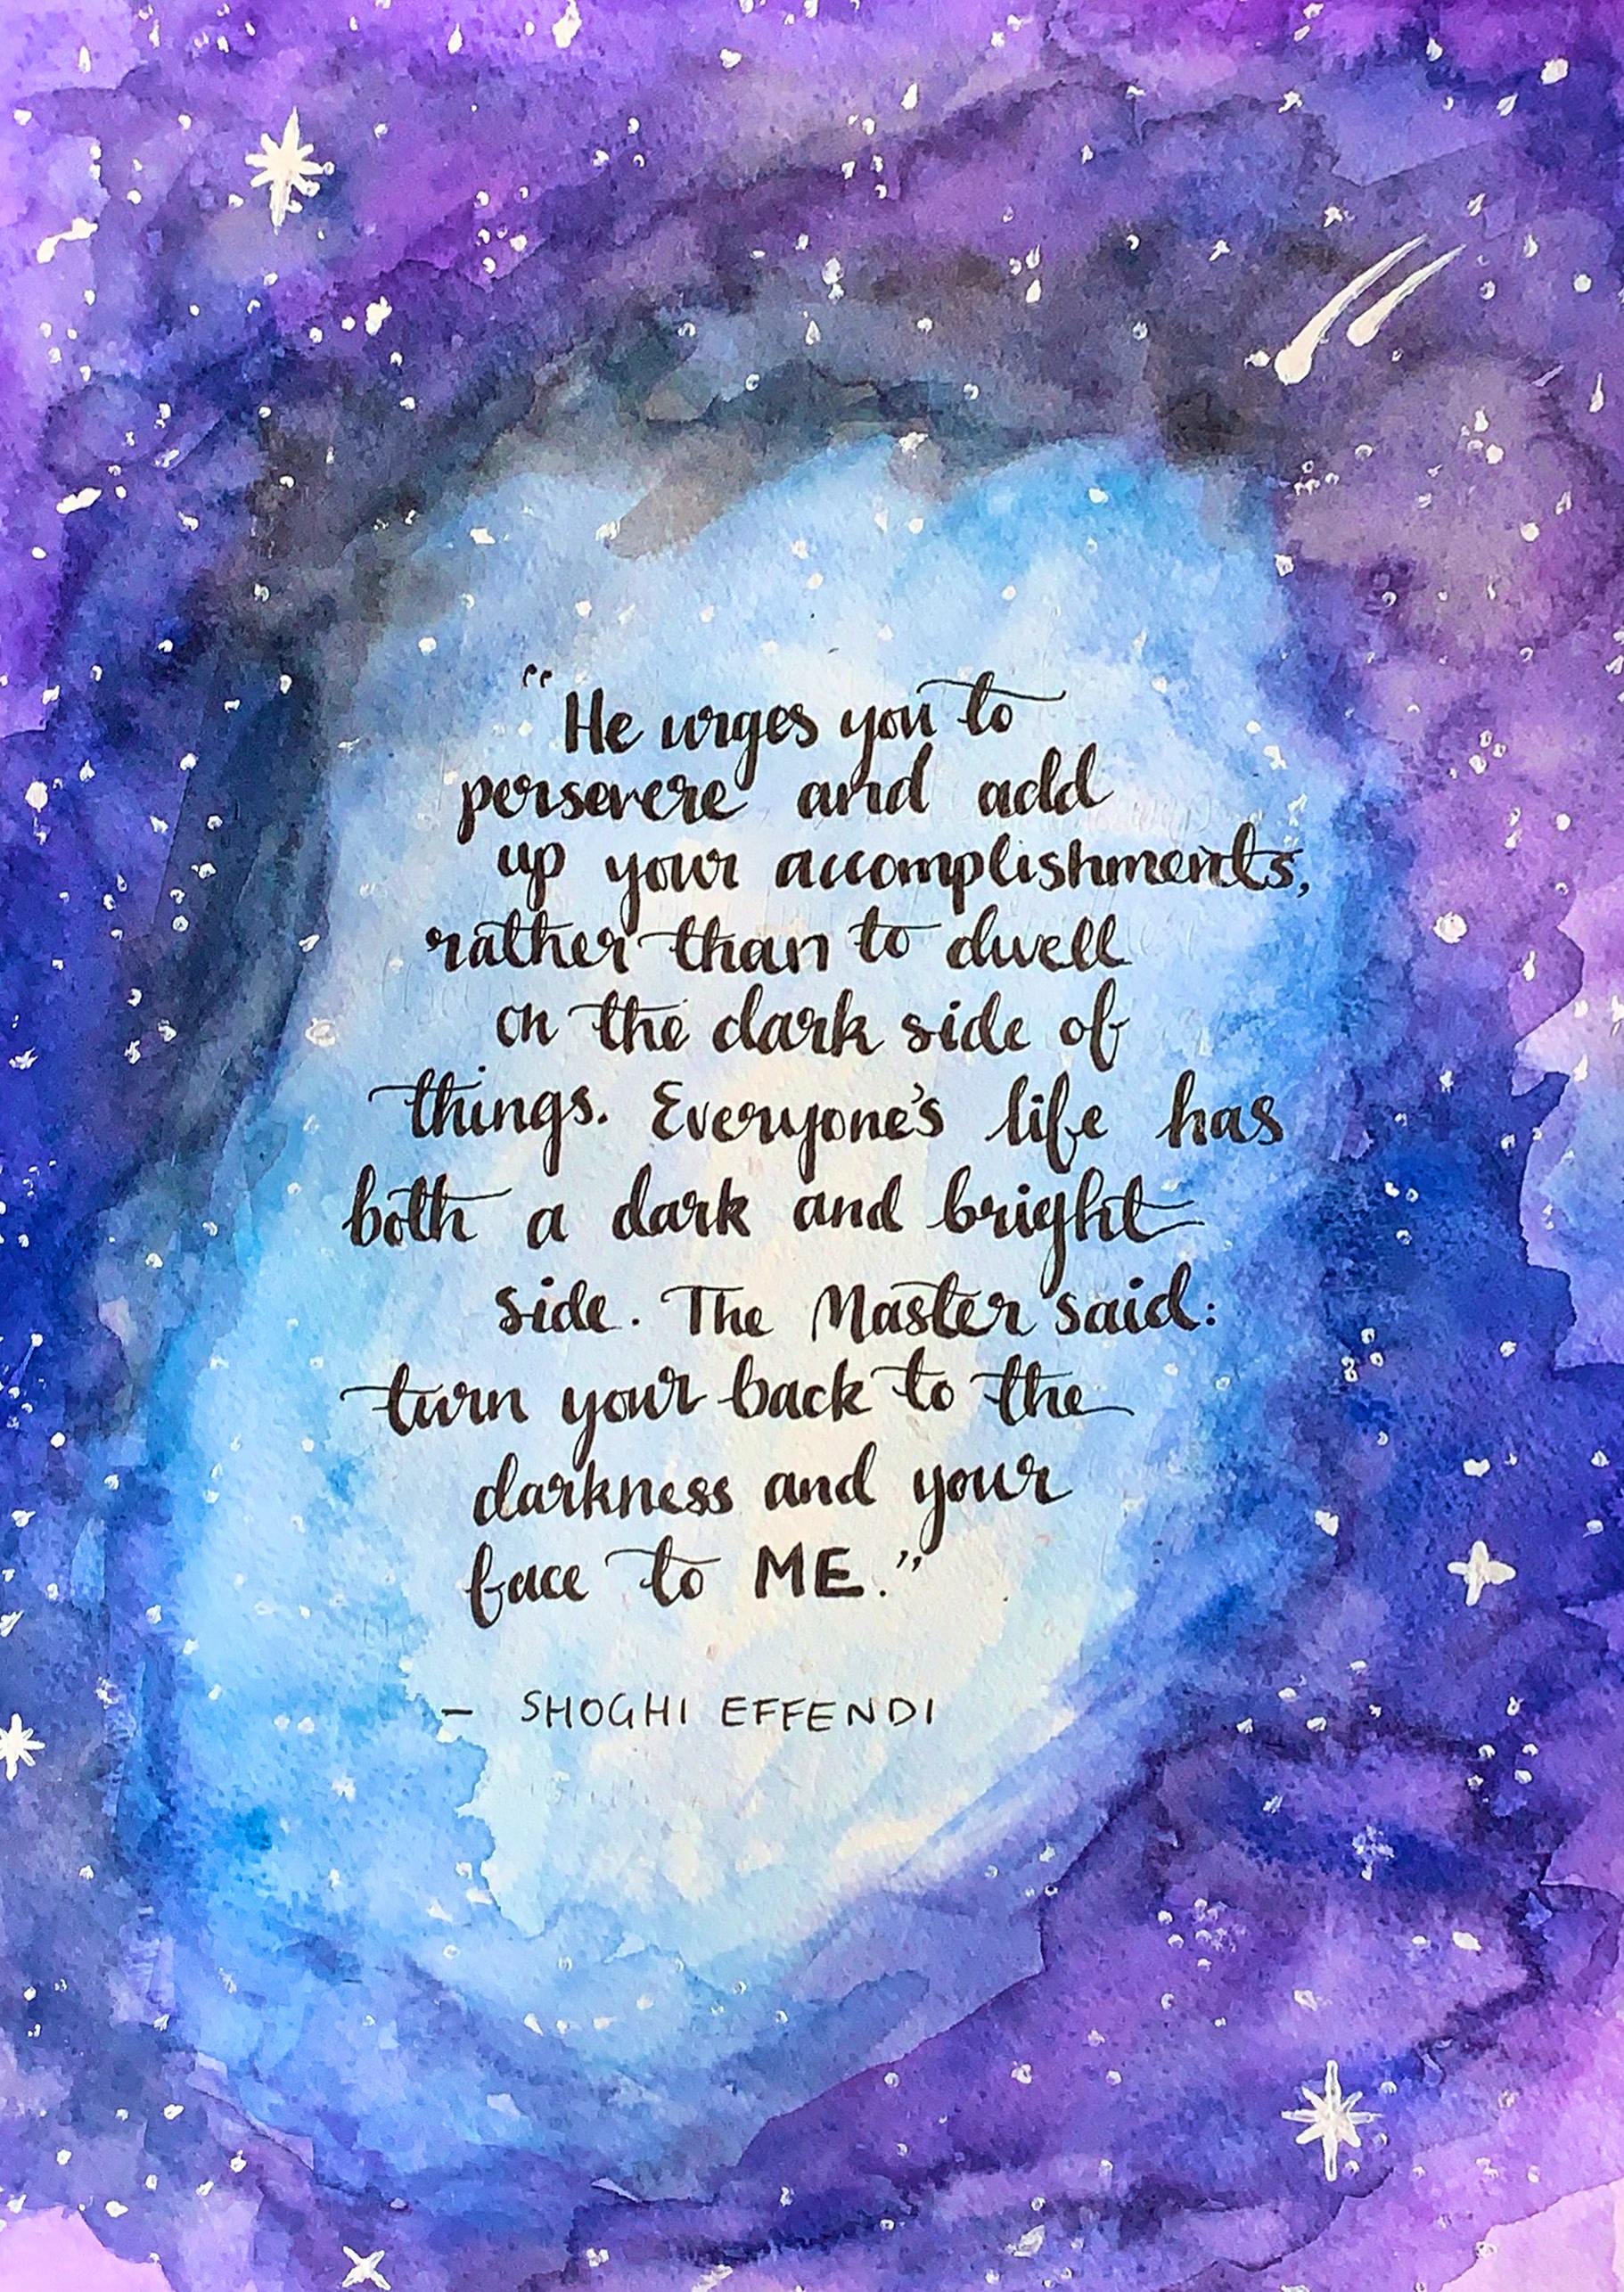 "He urges you to
persevere and add
up your accomplishments,
rather than to dwell
on the dark side of
things. Everyone's life has
both a dark and bright
side. The Master said:
turn your back to the
darkness and your
face to ME."
- SHOGHI EFFENDI